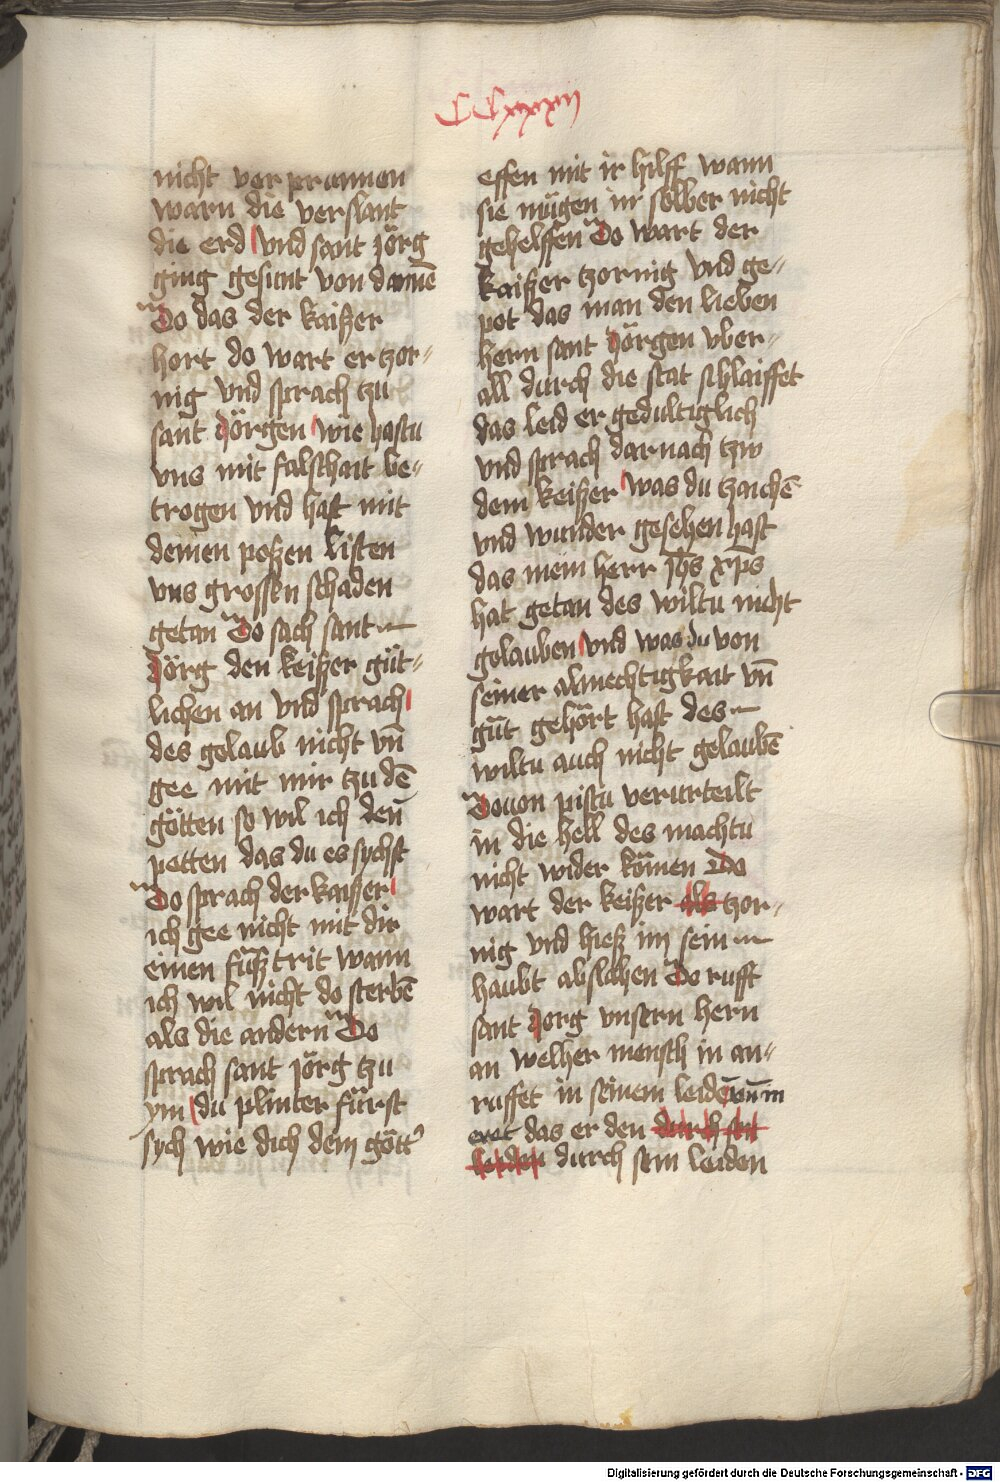 CClxxxxij
nicht verprunnen
warn die verslant
die erd vnd sant jörg
ging gesunt von dannē
Do das der kaißer
hort do wart er tzor-
nig vnd sprach tzu
sant Jörgen wie hastu
vns mit falschait be-
trogen vnd hast mit
deinen poßen listen
vns grossen schaden
getan Do sach sant
Jörg den keißer güt-
lichen an vnd sprach
des gelaub nicht vn̄
gee mit mir tzu dē
götten so wil ich den̄
petten das du es sychst
Do sprach der kaisser
ich gee nicht mit dir
einen füß trit wann
ich wil nicht do sterbē
als die andern Do
sprach sant jörg tzu
ym du plinter fürst
sych wie dich dein gött
essen mit ir hilff wann
sie mügen in selber nicht
gehelffen Do wart der
kaisser tzornig vnd ge-
pot das man den lieben
hern sant Jörgen vber-
all durch die stat schlaiffet
das leid er gedultiglich
vnd sprach darnach tzw
dem keißer was du tzaichē
vnd wunder gesehen hast
das mein herr Jhs xp̄s
hat getan des wiltu nicht
gelauben vnd was du von
seiner almechtigkait vn̄
güt gehört hast des
wiltu auch nicht gelaubē
Douon pistu verurteilt
in die hell des machtu
nicht wider kömen Do
wart der keißer als tzor-
nig vnd hieß im sein
haubt abslahen Do rufft
sant Jorg vnsern hern
an welher mensch in an-
ruffet in seinem leidē vn̄ in
eret das er den durch sein
leiden durch sein leiden
Digitalisierung gefördert durch die Deutsche Forschungsgemeinschaft - DFG